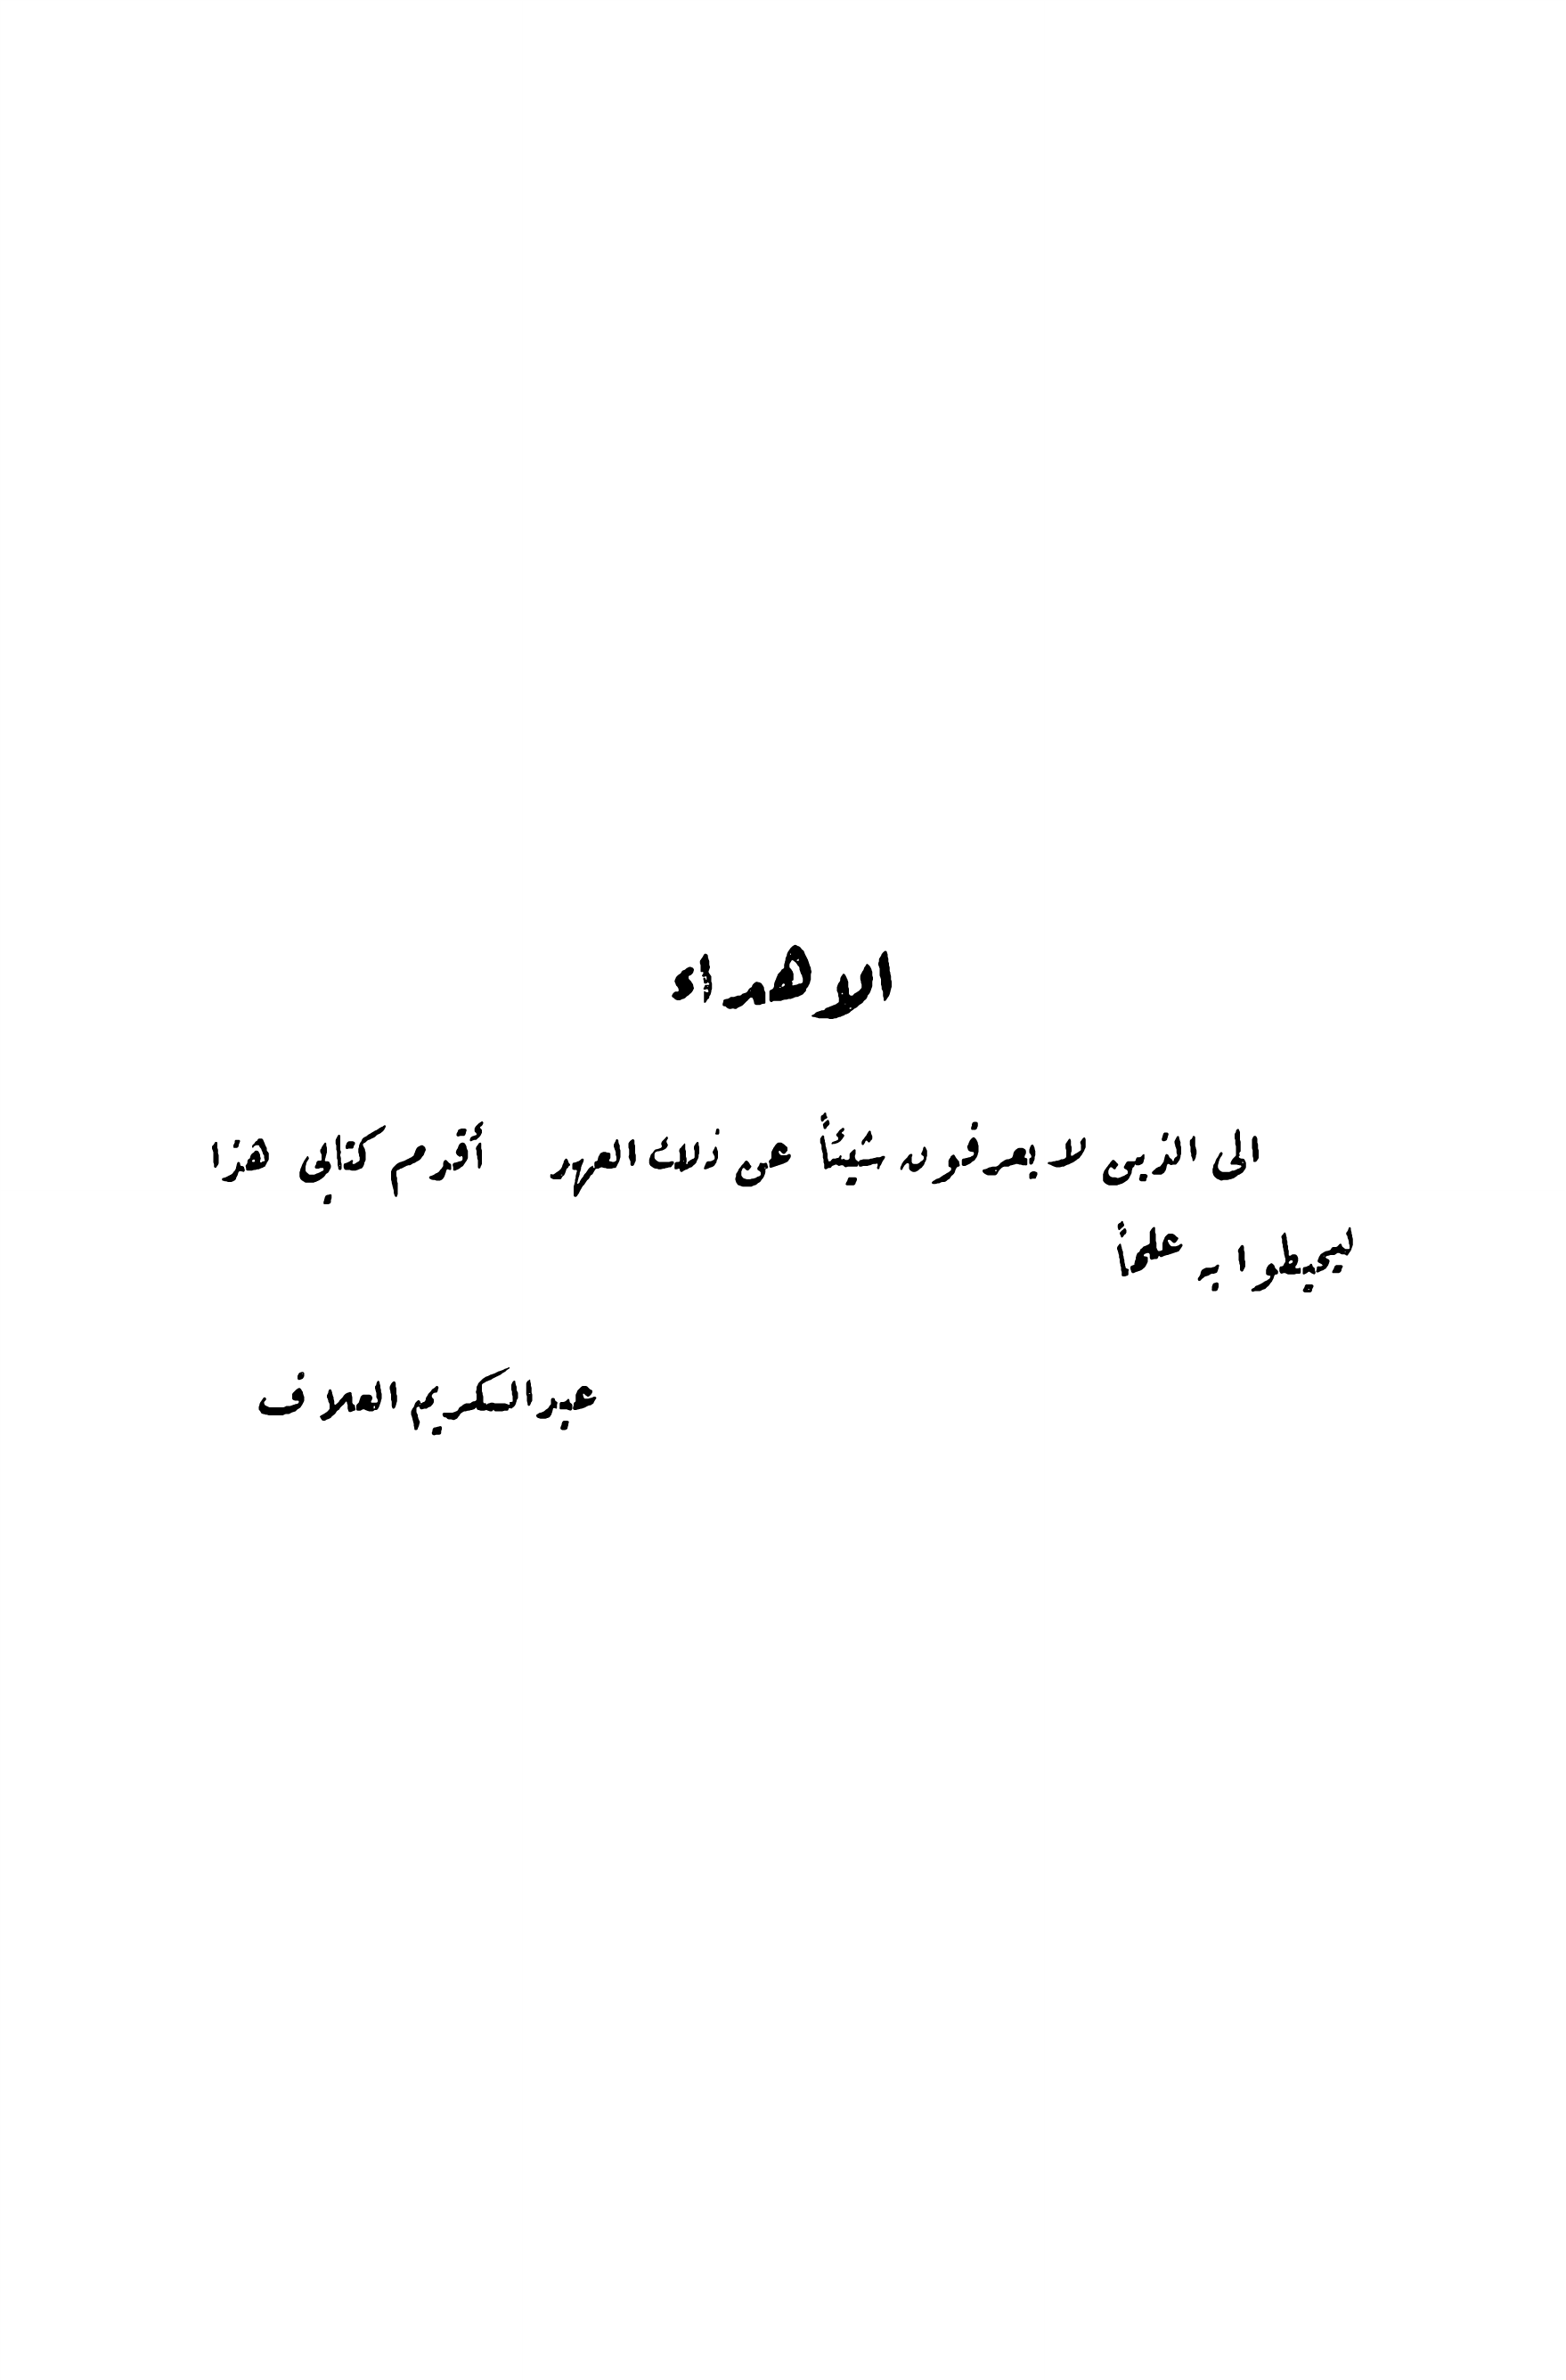 الاهداء
الى الذين لا يعرفون شيئاً عن ذلك العهد أقدم كتابي هذا
ليحيطوا به علماً
عبد الكريم العلاف